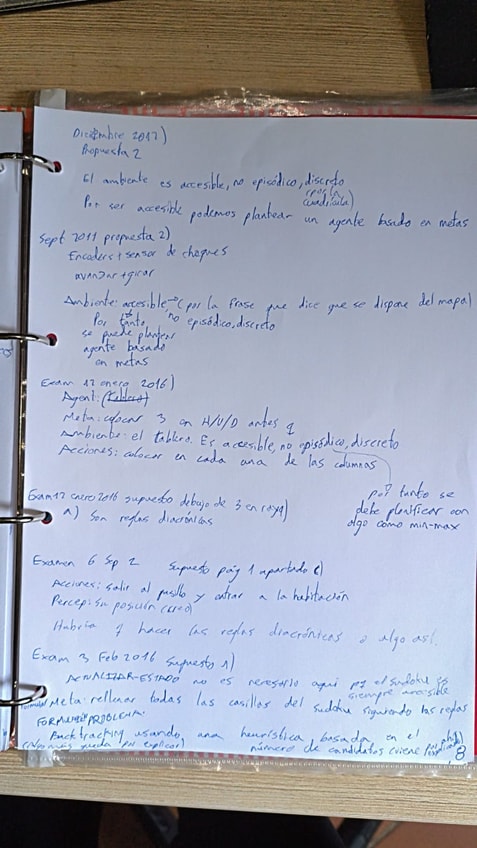 Diciembre 2017)
Propuesta 2
El ambiente es accesible, no episódico, discreto
(por la cuadrícula)
Por ser accesible podemos plantear un agente basado en metas
Sept 2011 propuesta 2)
Encoders + sensor de choques
avanzar + girar
Ambiente: accesible → (por la frase que dice que se dispone del mapa)
Por tanto, no episódico, discreto
se puede plantear
agente basado
en metas
Exam 12 enero 2016)
Agent: (Tablero)
Meta: colocar 3 en H/V/D antes q
Ambiente: el tablero. Es accesible, no episódico, discreto
Acciones: colocar en cada una de las columnas
por tanto se
debe planificar con
algo como min-max
Exam 12 enero 2016 supuesto debajo de 3 en raya)
a) Son reglas diacrónicas
Examen 6 Sep 2 Supuesto pág 1 apartado c)
Acciones: salir al pasillo y entrar a la habitación
Percep: su posición (creo)
Habría q hacer las reglas diacrónicas o algo así.
Exam 3 Feb 2016 Supuesto 1)
ACTUALIZAR-ESTADO no es necesario aquí pq el sudoku es
siempre accesible
Meta: rellenar todas las casillas del sudoku siguiendo las reglas
FORMULAR PROBLEMA:
Backtracking usando una heurística basada en el
número de candidatos (viene
8